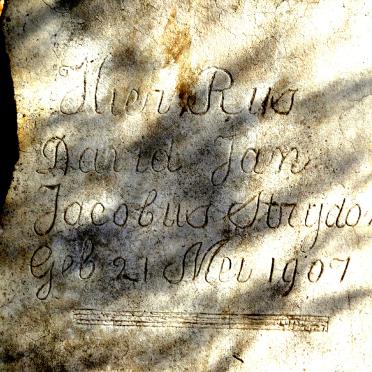 Hier Rus
David Jan
Jacobus Strydo
Geb 21 Mei 1907